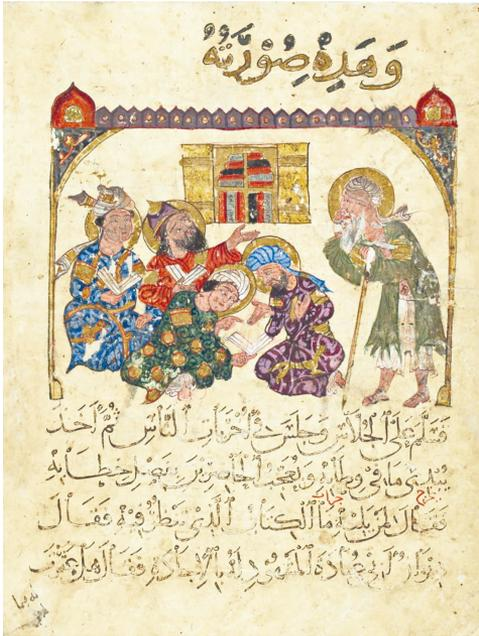 وَهَذِهِ صُوْرَتُهُ
فَسَلَّمَ عَلَى الجُلَّاسِ وَجَلَسَ فِي أُخْرَيَاتِ النَّاسِ ثُمَّ أَخَذَ
يُبْدِي مَا فِي وِطَابِهِ وَيُعْجِبُ الحَاضِرِيْنَ بِفَصْلِ خِطَابِهِ
فَقَالَ لِمَنْ يَلِيْهِ مَا الْكِتَابُ الَّذِي تَنْظُرُ فِيْهِ فَقَالَ
دِيْوَانُ أَبِي عُبَادَةَ المَشْهُودِ لَهُ بِالإِجَادَةِ فَقَالَ هَلْ عَثَرْتَ
له فيما